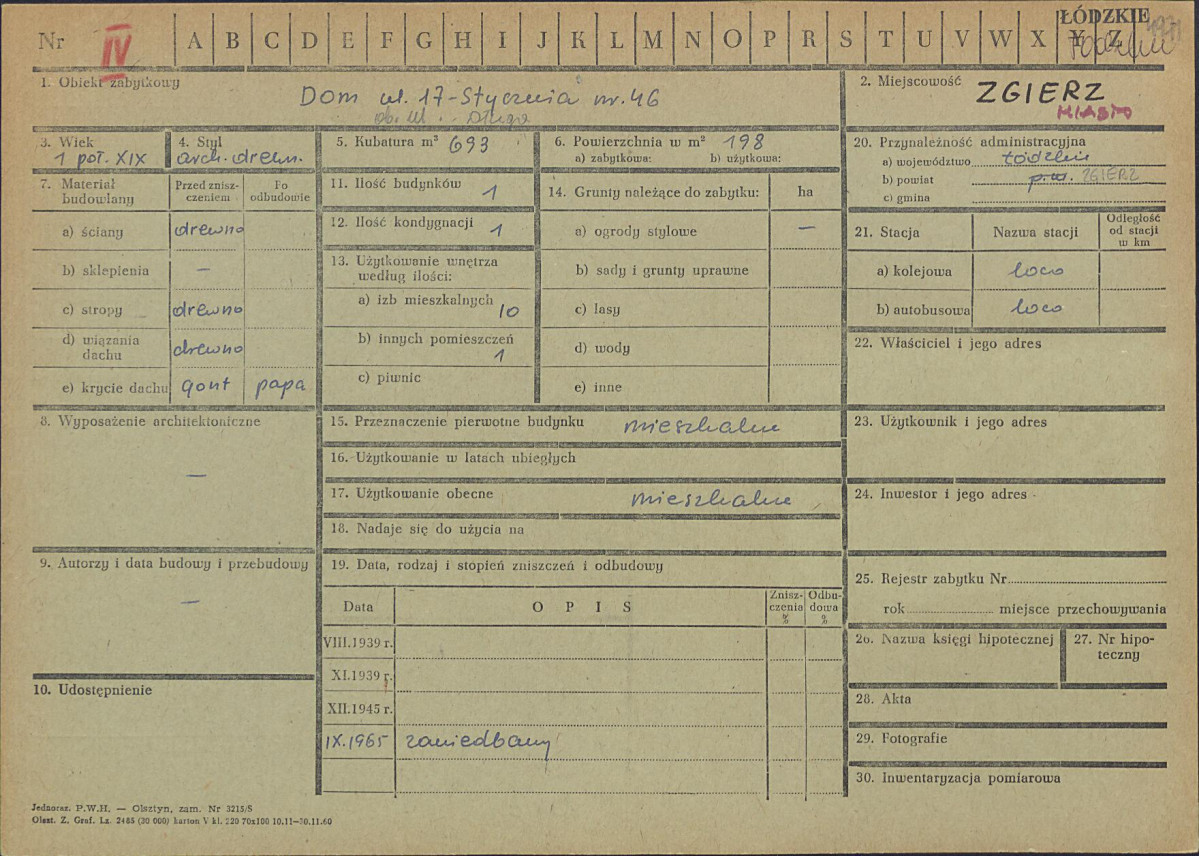 Nr IV A B C D E F G H I J K L M N O P R S T U V W X Y Z
ŁÓDZKIE 1971
łódzkie
1. Obiekt zabytkowy
Dom ul. 17-Stycznia nr. 46
ob. ul. Długa
2. Miejscowość ZGIERZ
MIASTO
3. Wiek
1 poł. XIX
4. Styl
arch. drewn.
5. Kubatura m³ 693
6. Powierzchnia w m² 198
a) zabytkowa: b) użytkowa:
7. Materiał budowlany
Przed zniszczeniem
Po odbudowie
a) ściany drewno
b) sklepienia —
c) stropy drewno
d) wiązania dachu drewno
e) krycie dachu gont papa
8. Wyposażenie architektoniczne
—
9. Autorzy i data budowy i przebudowy
—
10. Udostępnienie
11. Ilość budynków
1
12. Ilość kondygnacji 1
13. Użytkowanie wnętrza
według ilości:
a) izb mieszkalnych
10
b) innych pomieszczeń
1
c) piwnic
14. Grunty należące do zabytku: ha
a) ogrody stylowe —
b) sady i grunty uprawne
c) lasy
d) wody
e) inne
15. Przeznaczenie pierwotne budynku mieszkalne
16. Użytkowanie w latach ubiegłych
17. Użytkowanie obecne mieszkalne
18. Nadaje się do użycia na
19. Data, rodzaj i stopień zniszczeń i odbudowy
Data
OPIS
Zniszczenia %
Odbudowa %
VIII.1939 r.
XI.1939 r.
XII.1945 r.
IX.1965 zaniedbany
20. Przynależność administracyjna
a) województwo łódzkie
b) powiat p.w. ZGIERZ
c) gmina
21. Stacja
Nazwa stacji
Odległość od stacji w km
a) kolejowa loco
b) autobusowa loco
22. Właściciel i jego adres
23. Użytkownik i jego adres
24. Inwestor i jego adres
25. Rejestr zabytku Nr
rok miejsce przechowywania
26. Nazwa księgi hipotecznej
27. Nr hipoteczny
28. Akta
29. Fotografie
30. Inwentaryzacja pomiarowa
Jednoraz. P.W.H. — Olsztyn, zam. Nr 3215/S
Olszt. Z. Graf. Lz. 2485 (30 000) karton V kl. 220 70x100 10.11—30.11.60